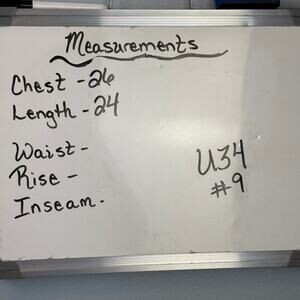 Measurements
Chest - 26
Length - 24
Waist -
Rise -
Inseam -
U34
#9